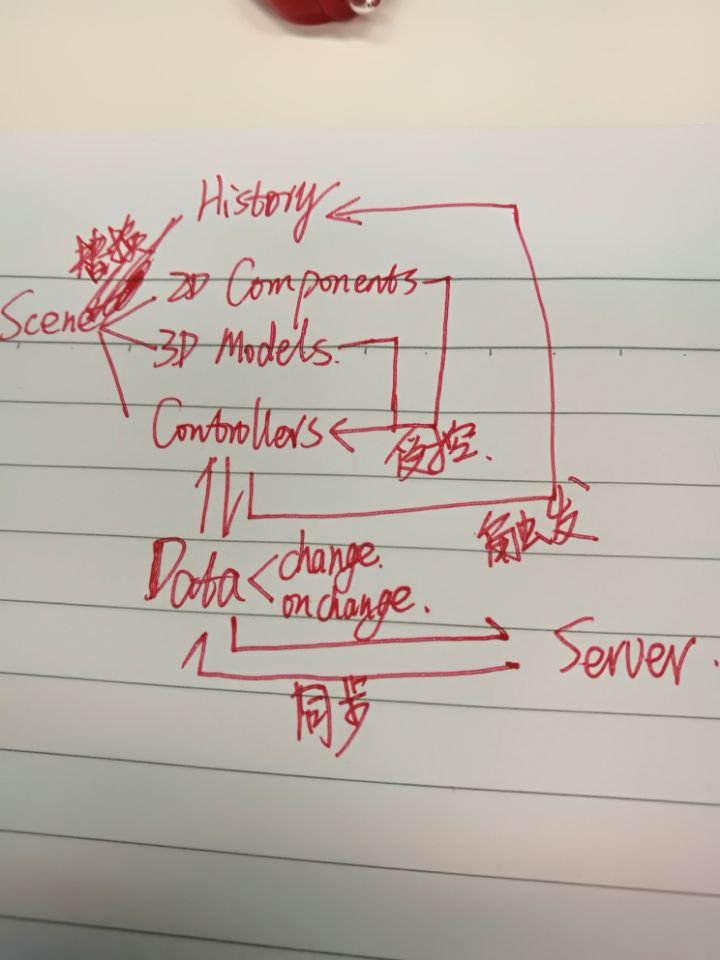 History
替换
2D Components
Scene
3D Models.
Controllers
受控.
触发
Data
change.
onchange.
Server.
同步